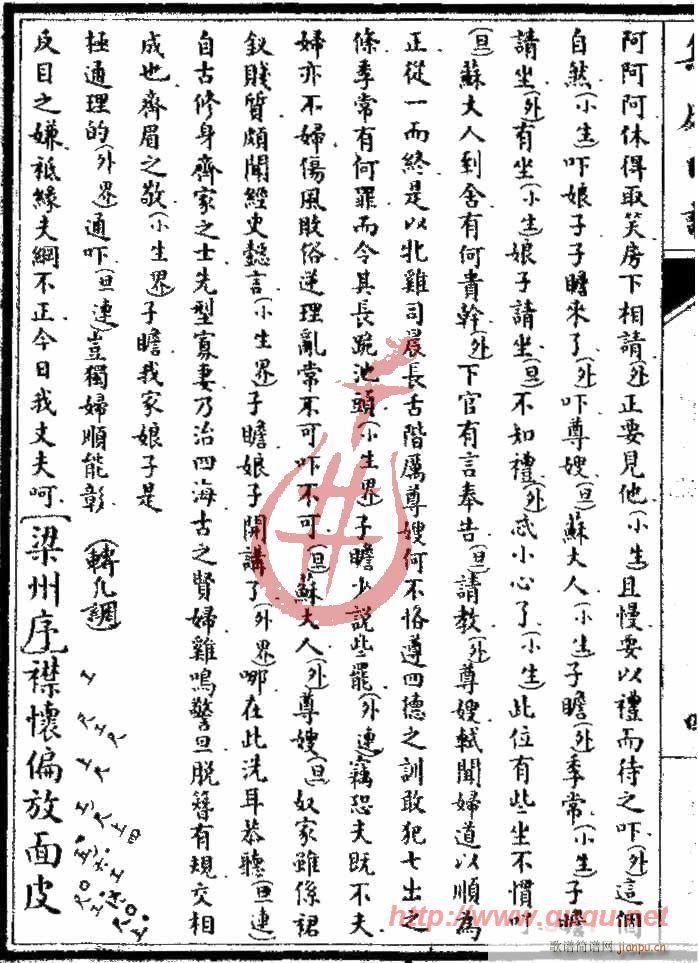 阿阿阿休得取笑房下相請(外)正要見他(小生)且慢要以禮而待之吓(外)這個
自然(小生)吓娘子子瞻來了(外)吓尊嫂(旦)蘇大人(小生)子瞻(外)季常(小生)子瞻
請坐(外)有坐(小生)娘子請坐(旦)不知禮(外)忒小心了(小生)此位有些坐不慣吓
(旦)蘇大人到舍有何貴幹(外)下官有言奉告(旦)請教(外)尊嫂軾聞婦道以順為
正從一而終是以牝雞司晨長舌階厲尊嫂何不恪遵四德之訓敢犯七出之
條季常有何罪而令其長跪池頭(小生界)子瞻少說些罷(外連)竊恐夫既不夫
婦亦不婦傷風敗俗逆理亂常不可吓不可(旦)蘇大人(外)尊嫂(旦)奴家雖係裙
釵賤質頗聞經史懿言(小生界)子瞻娘子開講了(外界)哪在此洗耳恭聽(旦連)
自古修身齊家之士先型寡妻乃治四海古之賢婦雞鳴警旦脫簪有規交相
成也齊眉之敬(小生界)子瞻我家娘子是
極通理的(外界)通吓(旦連)豈獨婦順能彰(轉凡調)
反目之嫌祗緣夫綱不正今日我丈夫呵[梁州序]襟懷偏放面皮
http://www.qnqu.net
歌谱简谱网
jianpu.cn